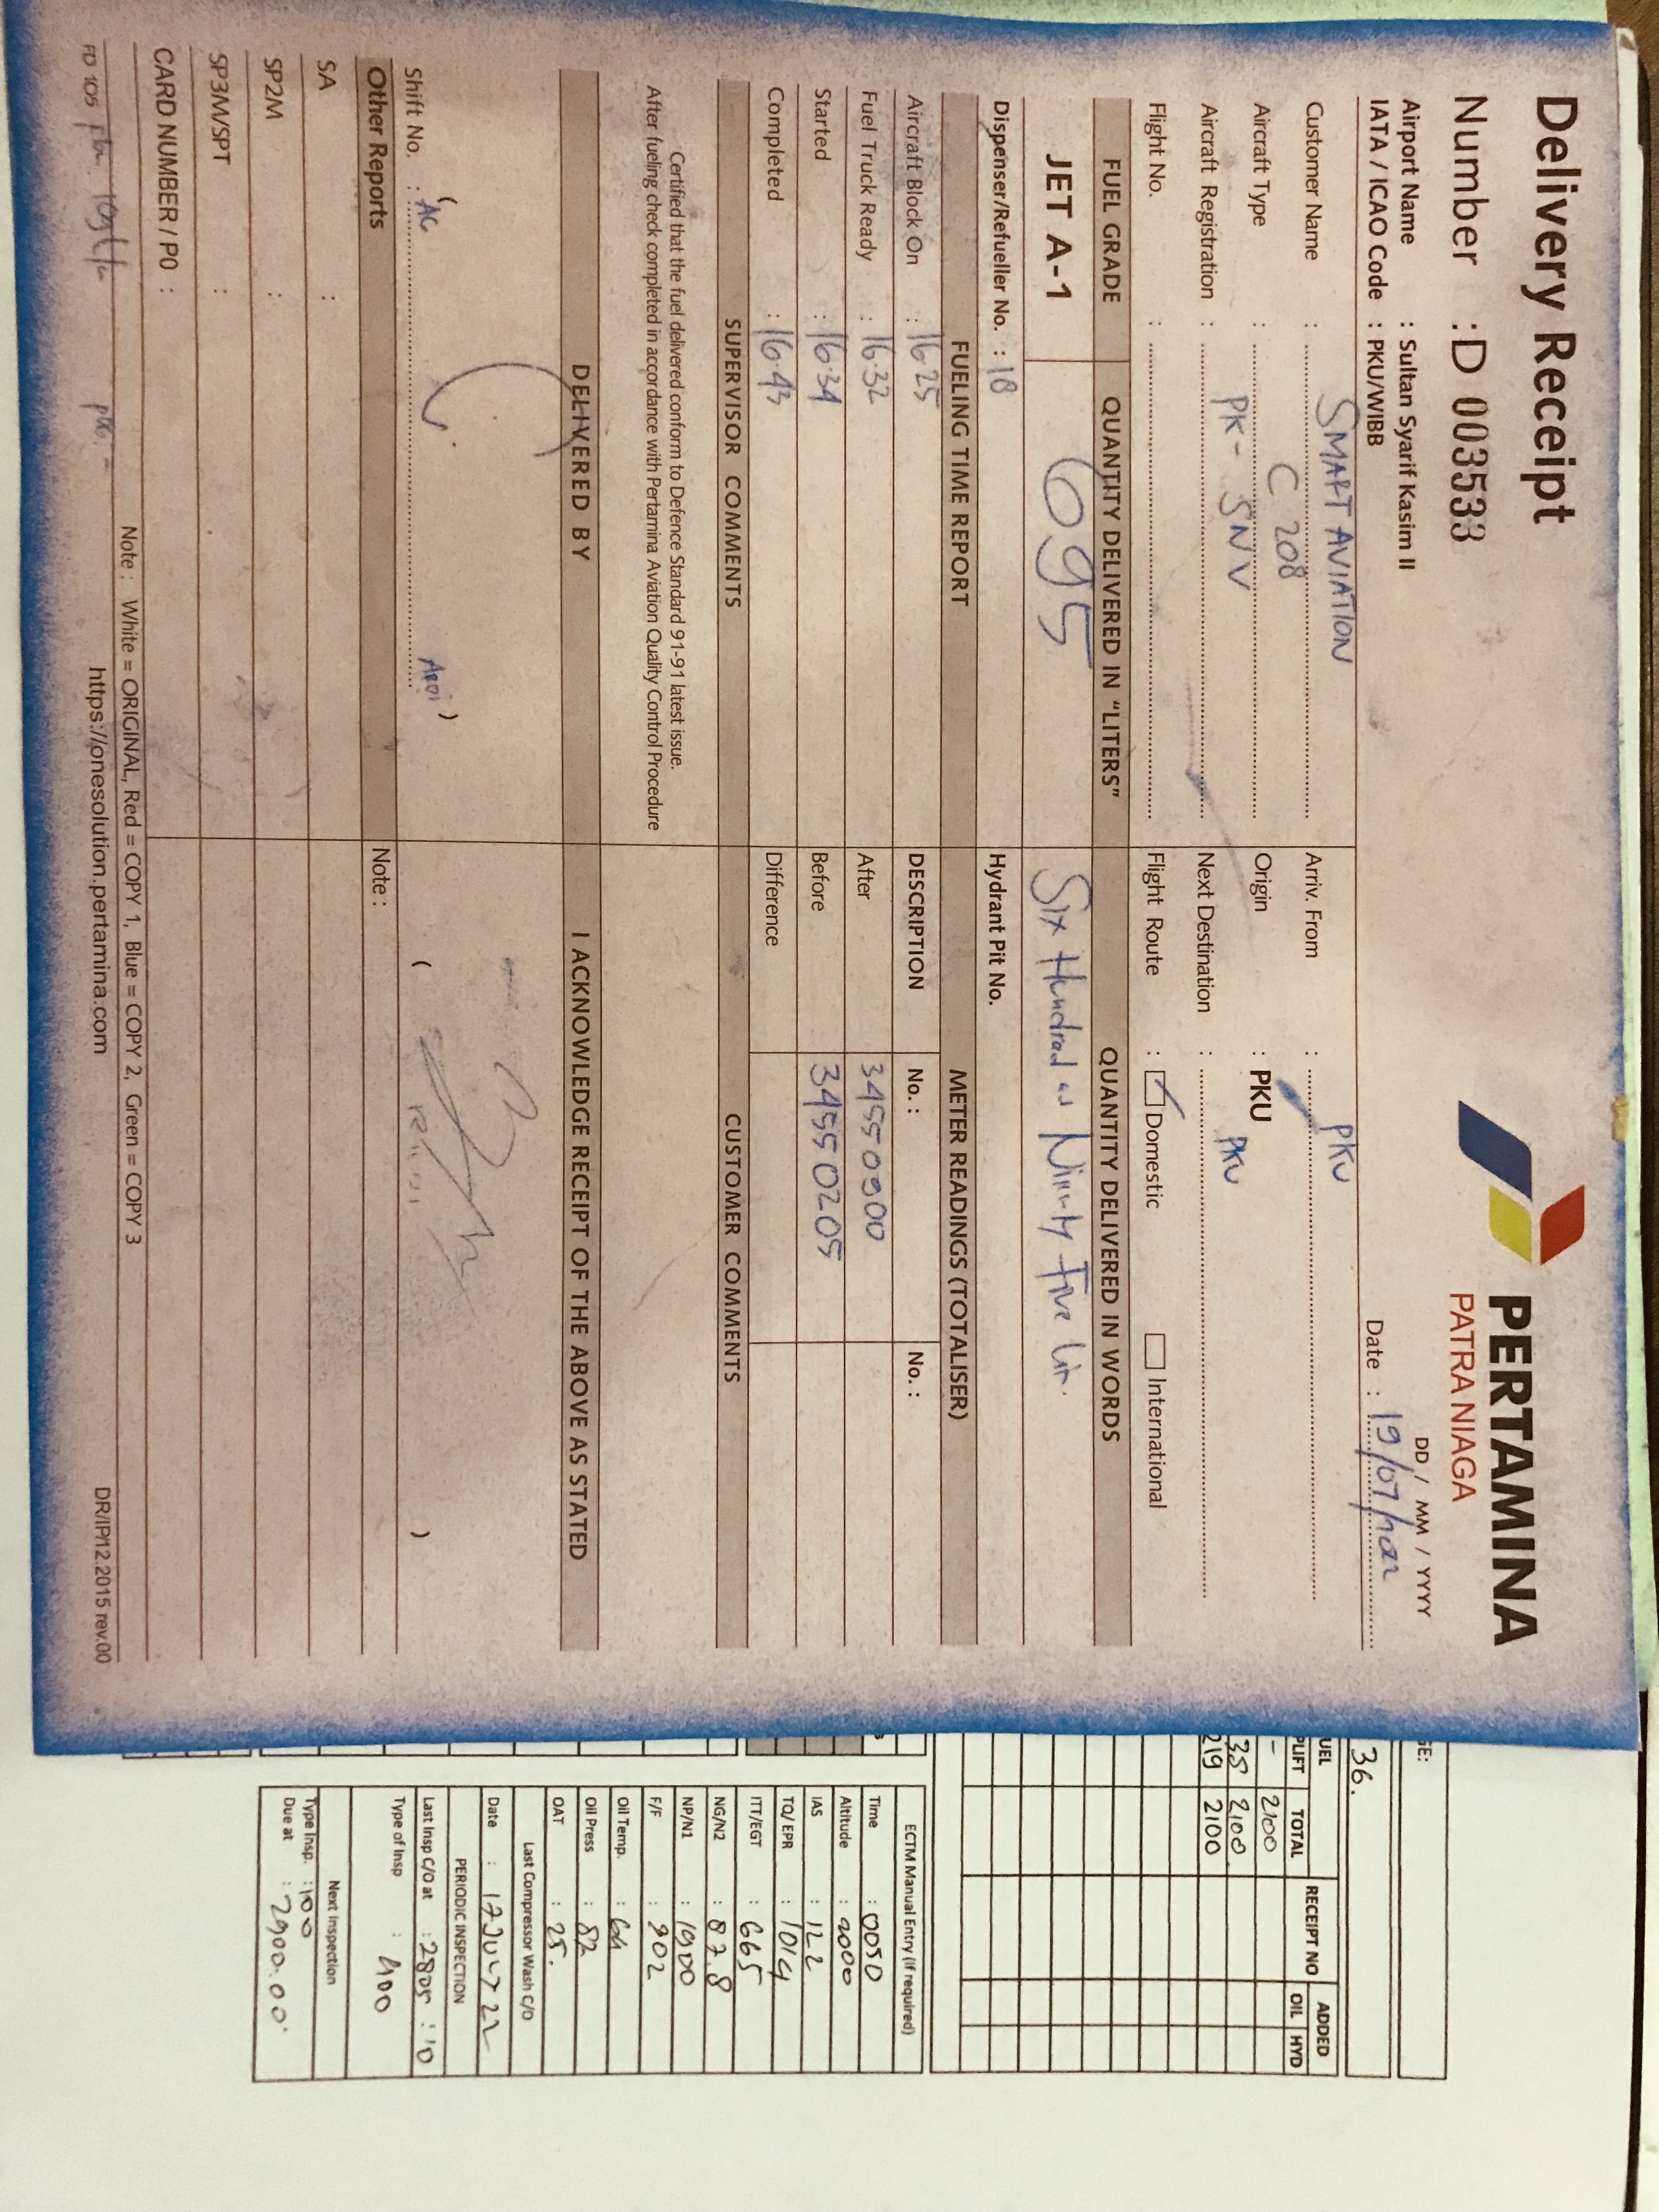 Delivery Receipt
PERTAMINA
PATRA NIAGA
Number : D 003533
DD / MM / YYYY
Airport Name : Sultan Syarif Kasim II
IATA / ICAO Code : PKU/WIBB
Date : 19/07/2022
Customer Name : SMART AVIATION
Arriv. From : PKU
Aircraft Type : C 208
Origin : PKU
Aircraft Registration : PK - SNV
Next Destination : PKU
Flight No. :
Flight Route : Domestic International
FUEL GRADE QUANTITY DELIVERED IN "LITERS" QUANTITY DELIVERED IN WORDS
JET A-1 695 Six Hundred Ninety Five Lit.
Dispenser/Refueller No. : 18 Hydrant Pit No.
FUELING TIME REPORT METER READINGS (TOTALISER)
Aircraft Block On : 16.25 DESCRIPTION No. : No. :
Fuel Truck Ready : 16.32 After 34550900
Started : 16.34 Before 34550205
Completed : 16.43 Difference
SUPERVISOR COMMENTS CUSTOMER COMMENTS
Certified that the fuel delivered conform to Defence Standard 91-91 latest issue.
After fueling check completed in accordance with Pertamina Aviation Quality Control Procedure
DELIVERED BY I ACKNOWLEDGE RECEIPT OF THE ABOVE AS STATED
Shift No. : ( AC ) ( )
Other Reports Note :
SA :
SP2M :
SP3M/SPT :
CARD NUMBER / PO :
Note : White = ORIGINAL, Red = COPY 1, Blue = COPY 2, Green = COPY 3
https://onesolution.pertamina.com
DR/IP/12.2015 rev.00
GE:
36.
UEL
PLIFT TOTAL RECEIPT NO ADDED
OIL HYD
- 2100
35 2100
219 2100
ECTM Manual Entry (If required)
Time : 0050
Altitude : 2000
IAS : 122
TQ/ EPR : 1014
ITT/EGT : 665
NG/N2 : 87.8
NP/N1 : 1900
F/F : 902
Oil Temp. : 64
Oil Press : 82
OAT : 25.
Last Compressor Wash C/O
Date : 17 JULY 22
PERIODIC INSPECTION
Last Insp C/O at : 2805 : 10
Type of Insp : 400
Next Inspection
Type Insp. : 100
Due at : 2900.00